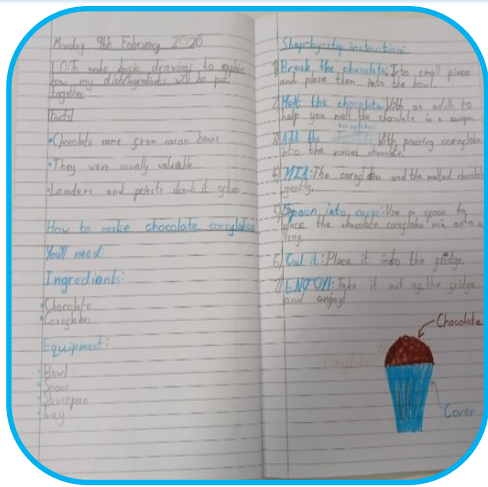 Monday 9th February 2026
LO: To make basic drawings to explain
how my ingredients will be put
together
Facts
• Chocolate come from cacao beans
• They were usually valuable
• Leaders and priests drank it often
How to make chocolate cornflakes
You'll need:
Ingredients:
• Chocolate
• Cornflakes
Equipment:
• Bowl
• Spoon
• Saucepan
• Tray
Step-by-step instructions:
1) Break the chocolate: Into small pieces
and place them into the bowl.
2) Melt the chocolate: With an adult to
help you melt the chocolate in a
3) Add the cornflakes With pouring cornflakes
into the chocolate.
4) MIX: The and the melted chocolate
gently.
5) Spoon into cups: Use a spoon to
place the chocolate cornflake mix onto a
tray.
6) Cool it: Place it into the fridge.
7) ENJOY!: Take it out of the fridge
and
Chocolate
Cover